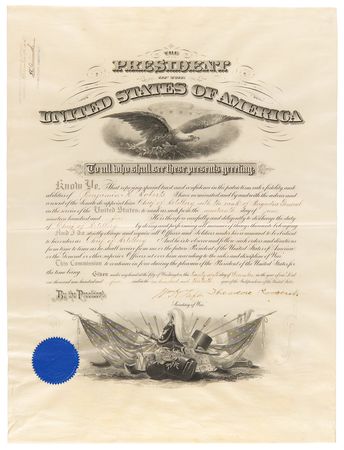 THE
PRESIDENT
OF THE
UNITED STATES OF AMERICA
To all who shall see these presents greeting:
Know Ye, That reposing special trust and confidence in the patriotism, valor, fidelity and
abilities of I have nominated and by and with the advice and
consent of the Senate do appoint him Chief of Artillery with the rank of Brigadier General
in the service of the United States: to rank as such from the day of
nineteen hundred and He is therefore carefully and diligently to discharge the duty
of Chief of Artillery by doing and performing all manner of things thereunto belonging.
And I do strictly charge and require all Officers and Soldiers under his command to be obedient
to his orders as Chief of Artillery And he is to observe and follow such orders and directions
from time to time as he shall receive from me or the future President of the United States of America
or the General or other superior Officers set over him according to the rules and discipline of War.
This Commission to continue in force during the pleasure of the President of the United States for
the time being.
Given under my hand at the City of Washington this day of in the year of our Lord
one thousand nine hundred and and in the one hundred and year of the Independence of the United States.
By the President:
Theodore Roosevelt
Wm H Taft
Secretary of War.